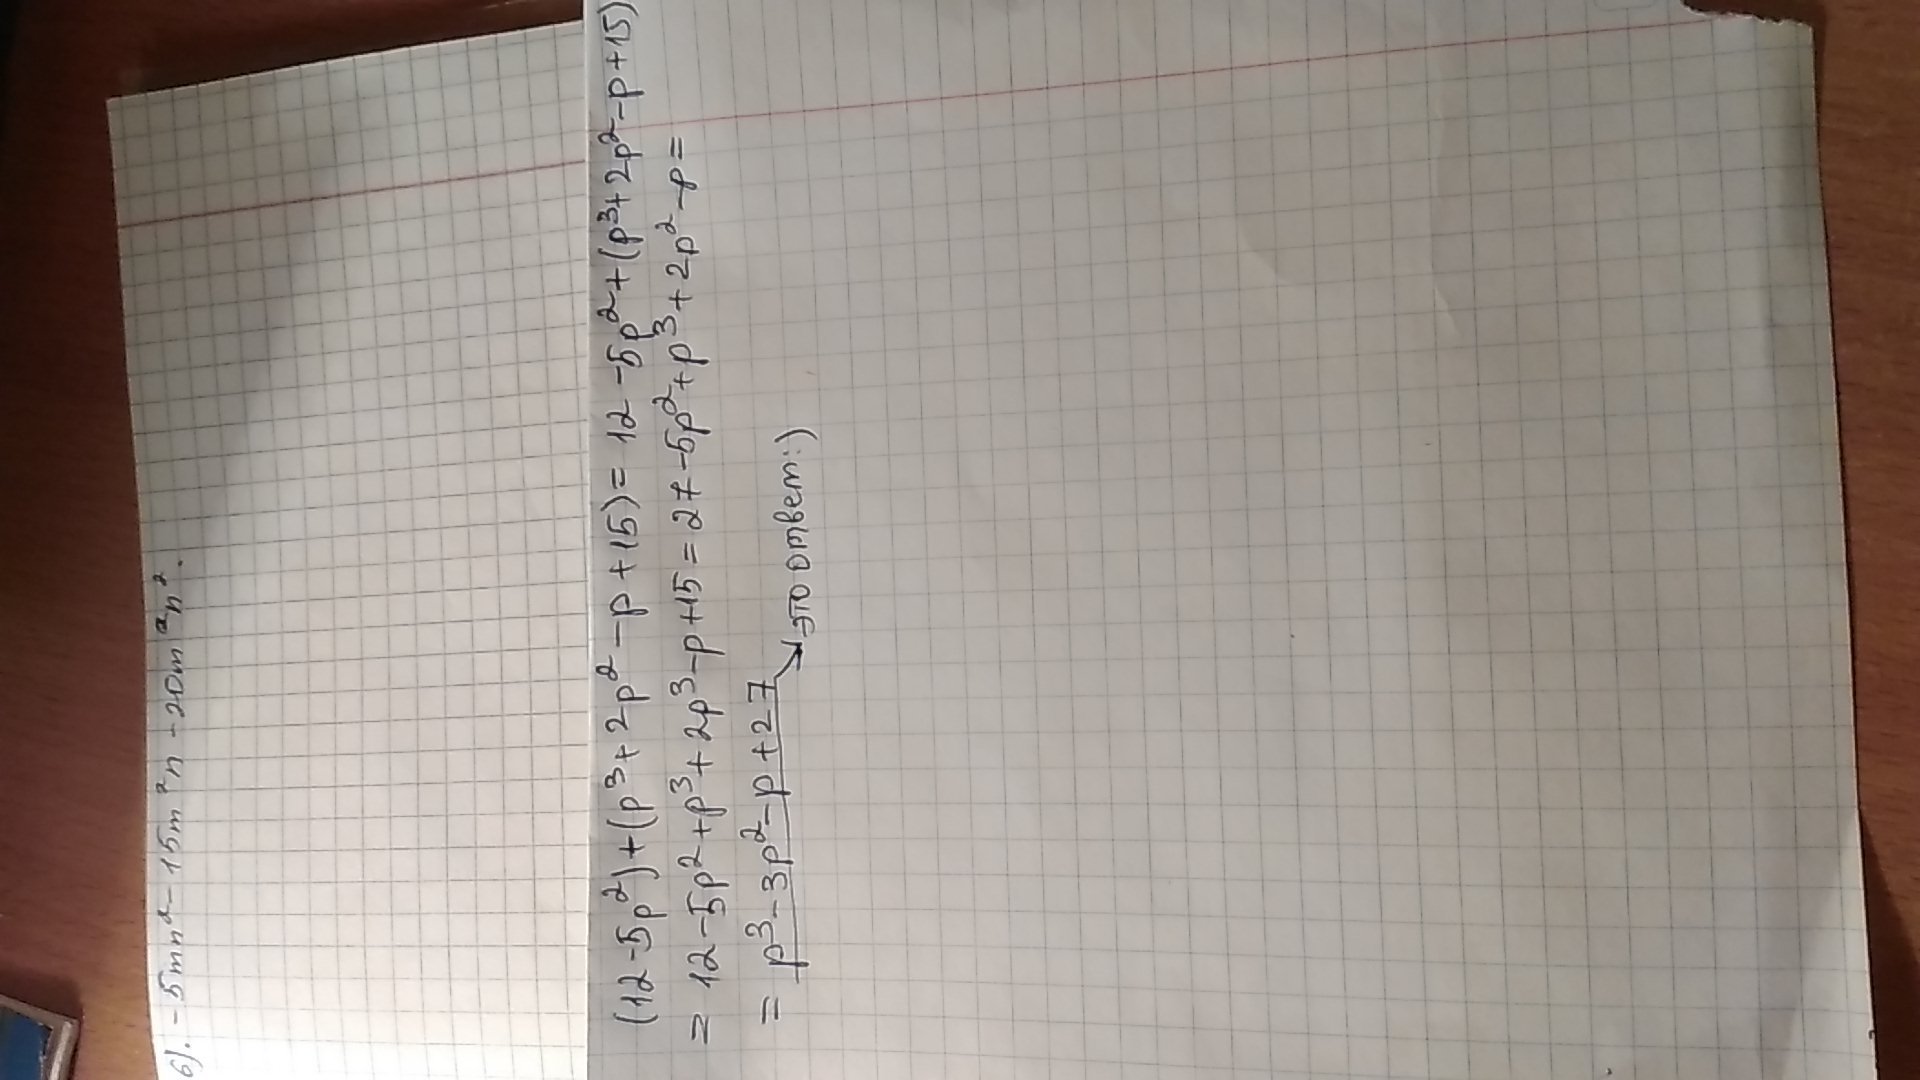 6). -5mn²-15m²n-20m²n².
(12-5p²)+(p³+2p²-p+15)=12-5p²+(p³+2p²-p+15)
=12-5p²+p³+2p³-p+15=27-5p²+p³+2p²-p=
=p³-3p²-p+27
это ответ:)